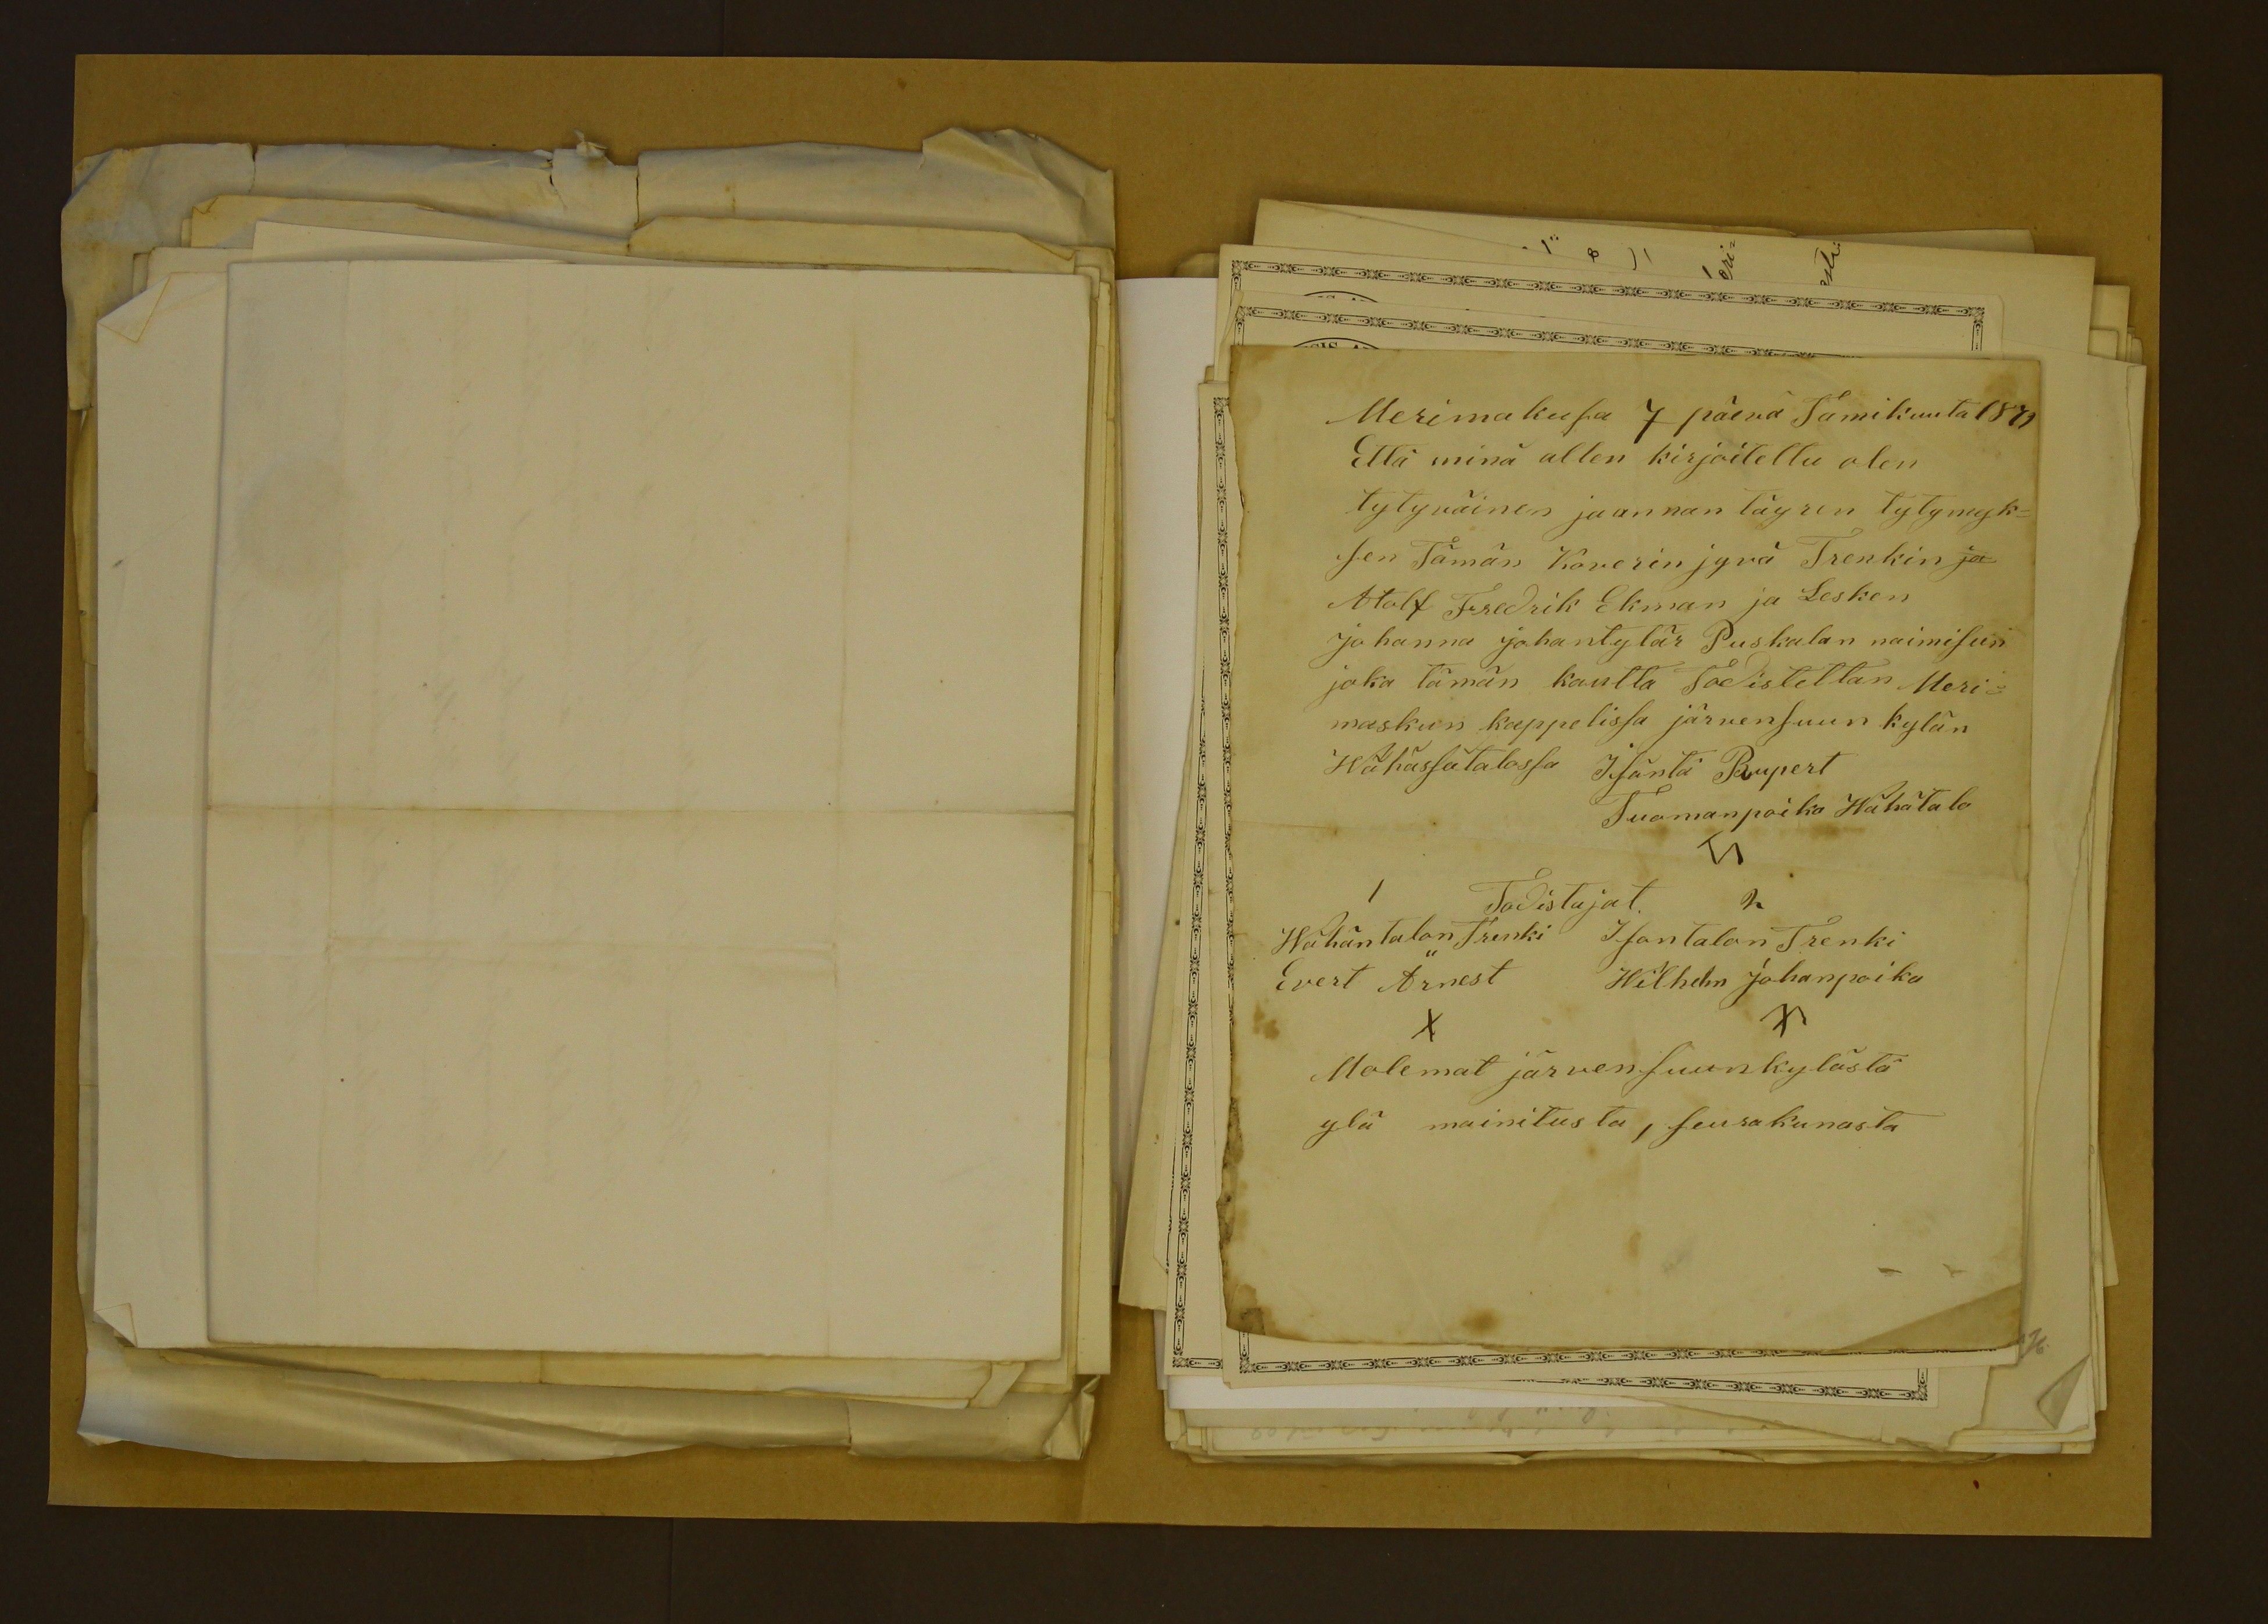 Merimakusa 7 päevä Tamikuuta 1879
Että minä allen kirjoitettu olen
tytyväinen ja annan täyren tytymyk=
sen Tämän Koverin jyvä Trenkin ja
Atolf Fredrik Ekman ja Lesken
johanna johantytär Puskalan naimisun
joka tämän kautta Todistettan Meri=
maskun kappelissa järvensuun kylän
Wähässätalossa Isäntä Rupert
Tuomanpoika Wähätalo
1 Todistujat. 2
Wähäntalon Trenki Isontalon Trenki
Evert Ärnest Wilhelm Johanpoika
X
Molemat järvensuunkylästä
ylä mainitusta, seurakunasta